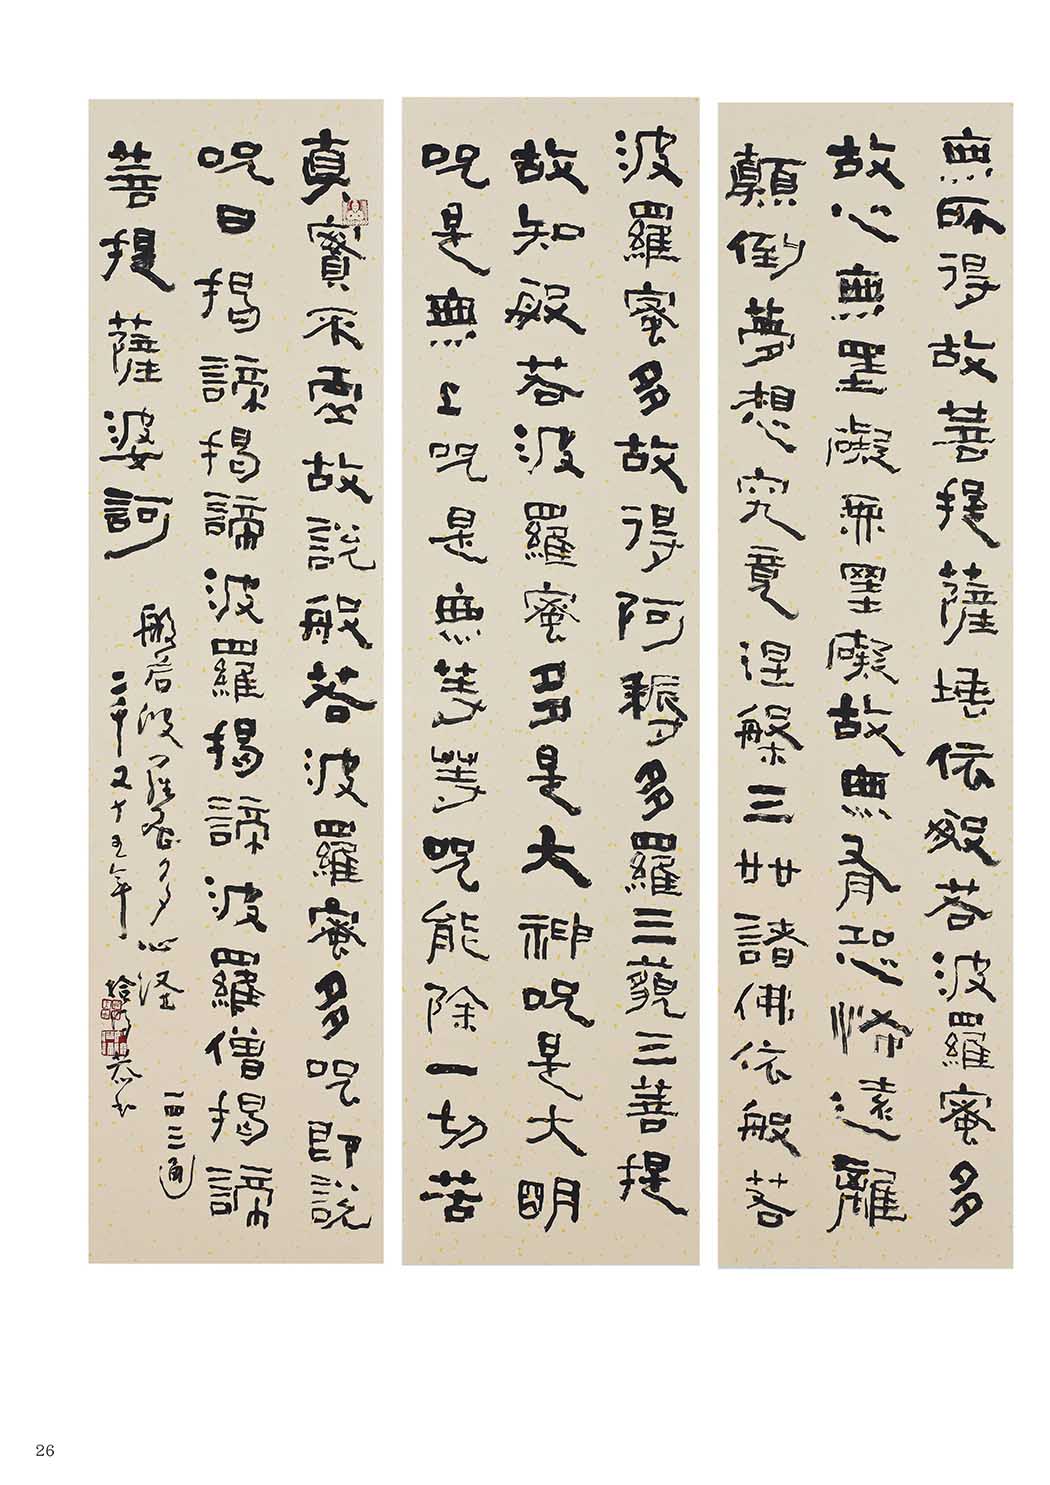 無所得故菩提薩埵依般若波羅蜜多
故心無罣礙無罣礙故無有恐怖遠離
顛倒夢想究竟涅槃三世諸佛依般若
波羅蜜多故得阿耨多羅三藐三菩提
故知般若波羅蜜多是大神呪是大明
呪是無上呪是無等等呪能除一切苦
真實不虛故說般若波羅蜜多呪即說
呪曰揭諦揭諦波羅揭諦波羅僧揭諦
菩提薩婆訶
般若波羅蜜多心経
一四三通
二千又十五年 恭书
26